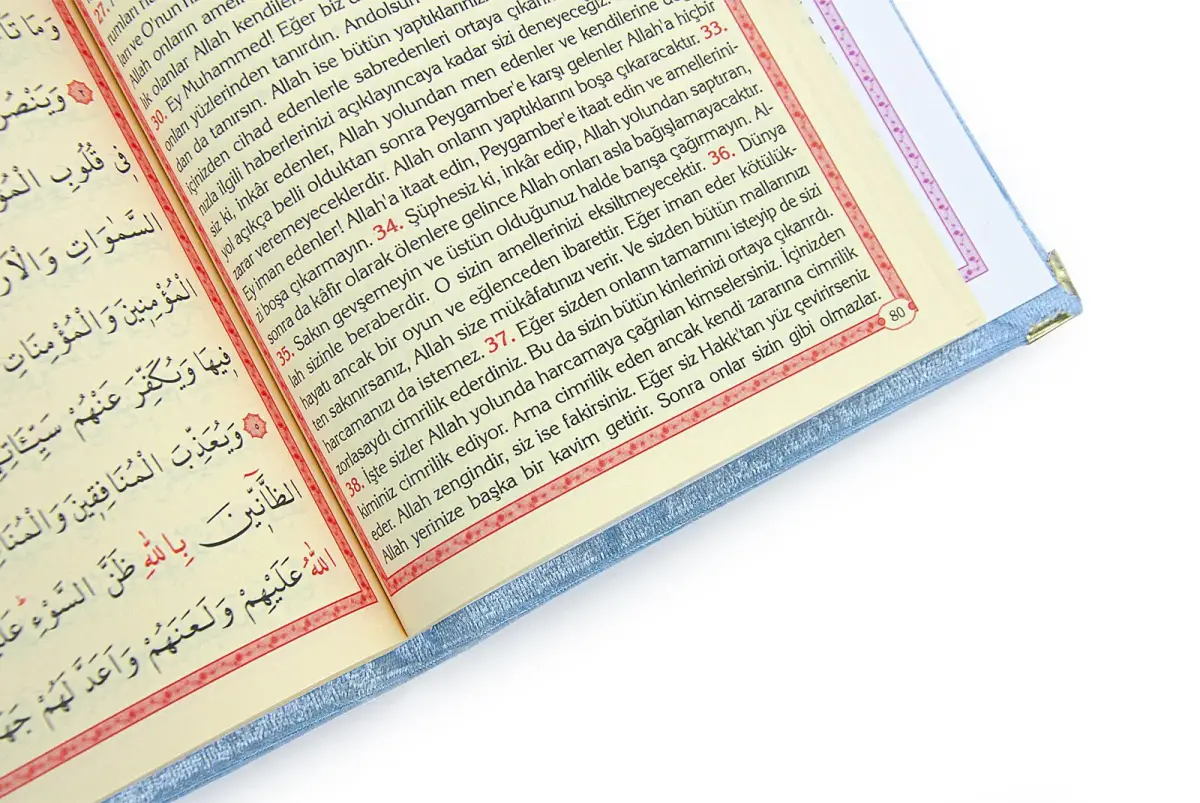 وَمَا تَأَ
وَيَنْصُرَ
فِي قُلُوبِ الْمُؤْ
السَّمٰوَاتِ وَالْاَرْ
الْمُؤْمِنِينَ وَالْمُؤْمِنَاتِ
فِيهَا وَيُكَفِّرَ عَنْهُمْ سَيِّئَاتِهِ
وَيُعَذِّبَ الْمُنَافِقِينَ وَالْمُنَا
الظَّٓانِّينَ بِاللّٰهِ ظَنَّ السَّوْءِ عَلَ
اللّٰهُ عَلَيْهِمْ وَلَعَنَهُمْ وَاَعَدَّ لَهُمْ جَهَ
27.
lan ve O'nun
Allah onların
lik olanlar Allah kendilerin
30. Ey Muhammed! Eğer biz
onları yüzlerinden tanırdın. Andolsun
dan da tanırsın. Allah ise bütün yaptıklarınızı
içinizden cihad edenlerle sabredenleri ortaya çıkarın
nızla ilgili haberlerinizi açıklayıncaya kadar sizi deneyeceğiz.
siz ki, inkâr edenler, Allah yolundan men edenler ve kendilerine
yol açıkça belli olduktan sonra Peygamber'e karşı gelenler Allah'a hiçbir
zarar veremeyeceklerdir. Allah onların yaptıklarını boşa çıkaracaktır. 33.
Ey iman edenler! Allah'a itaat edin, Peygamber'e itaat edin ve amellerini-
zi boşa çıkarmayın. 34. Şüphesiz ki, inkâr edip, Allah yolundan saptıran,
sonra da kâfir olarak ölenlere gelince Allah onları asla bağışlamayacaktır.
35. Sakın gevşemeyin ve üstün olduğunuz halde barışa çağırmayın. Al-
lah sizinle beraberdir. O sizin amellerinizi eksiltmeyecektir. 36. Dünya
hayatı ancak bir oyun ve eğlenceden ibarettir. Eğer iman eder kötülük-
ten sakınırsanız, Allah size mükâfatınızı verir. Ve sizden bütün mallarınızı
harcamanızı da istemez. 37. Eğer sizden onların tamamını isteyip de sizi
zorlasaydı cimrilik ederdiniz. Bu da sizin bütün kinlerinizi ortaya çıkarırdı.
38. İşte sizler Allah yolunda harcamaya çağrılan kimselersiniz. İçinizden
kiminiz cimrilik ediyor. Ama cimrilik eden ancak kendi zararına cimrilik
eder. Allah zengindir, siz ise fakirsiniz. Eğer siz Hakk'tan yüz çevirirseniz
Allah yerinize başka bir kavim getirir. Sonra onlar sizin gibi olmazlar.
80